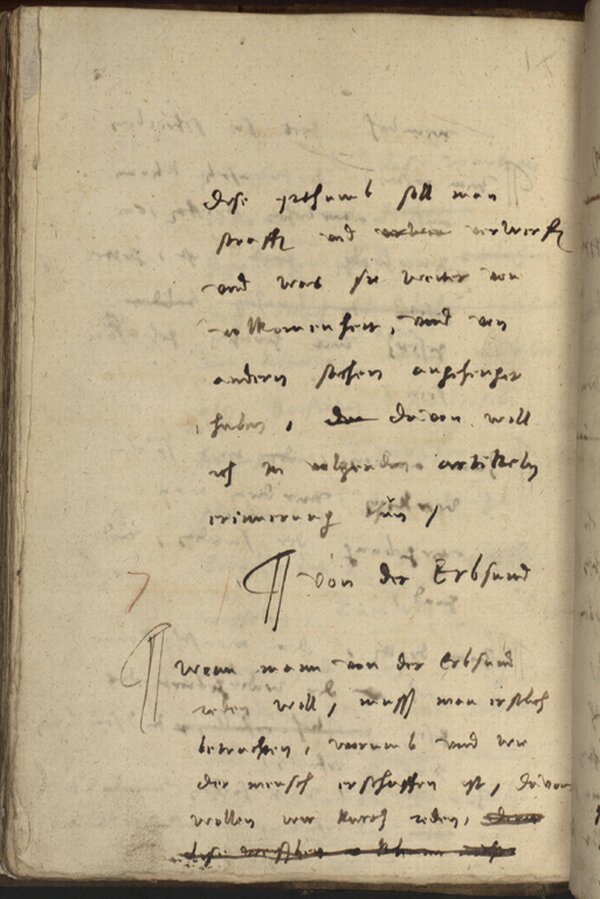 dise yrthumb soll man
straffen und verwerffen
und was sie weiter von
volkomenheit, und von
andern sachen angehenget
haben, davon will
ich in volgenden artikeln
erinnerung thun /
¶ Von der Erbsund
¶ Wenn mann von der Erbsund
reden will, muss man erstlich
betrachten, warumb und wie
der mensch erschaffen ist, davon
wollen wir kurtz reden,